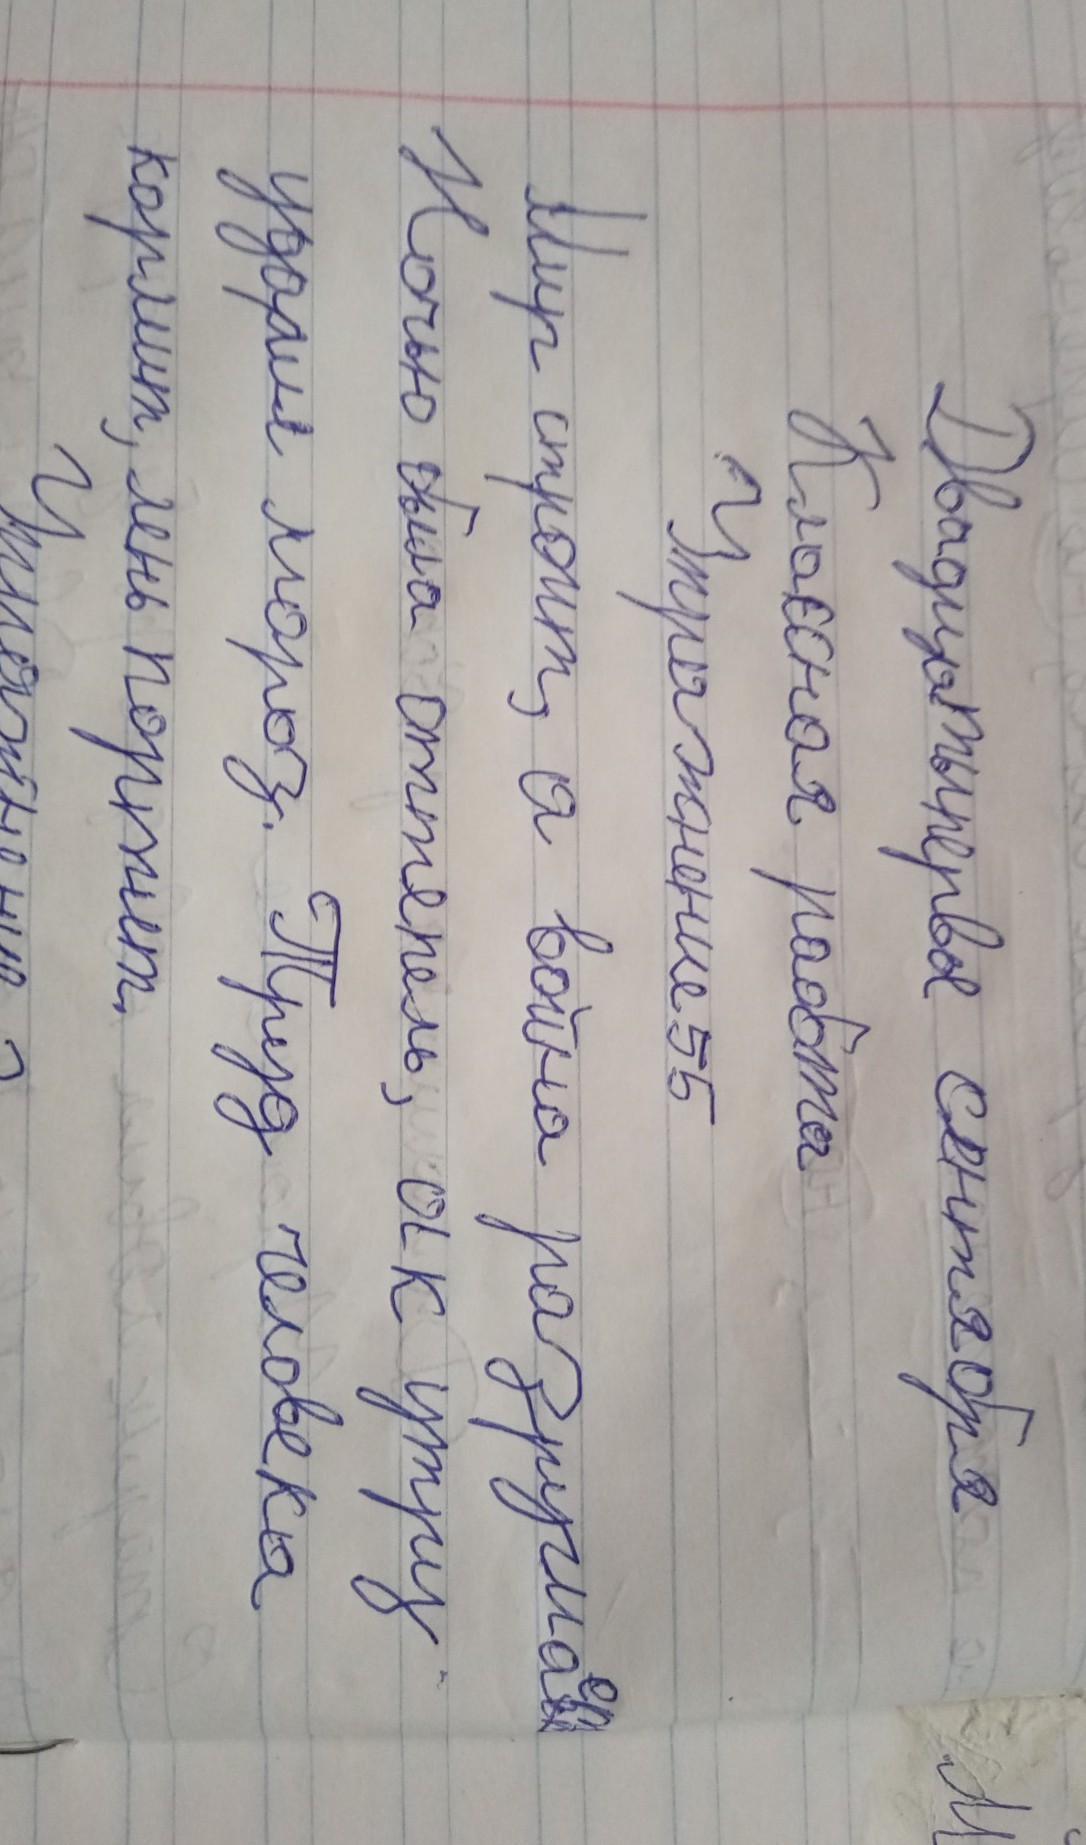 Двадцатьпервое сентября
Классная работа
Упражнение 55
Мир строит, а война разрушает
Ночью была оттепель, а к утру
ударил мороз. Труд человека
кормит, лень портит.
Упражнение